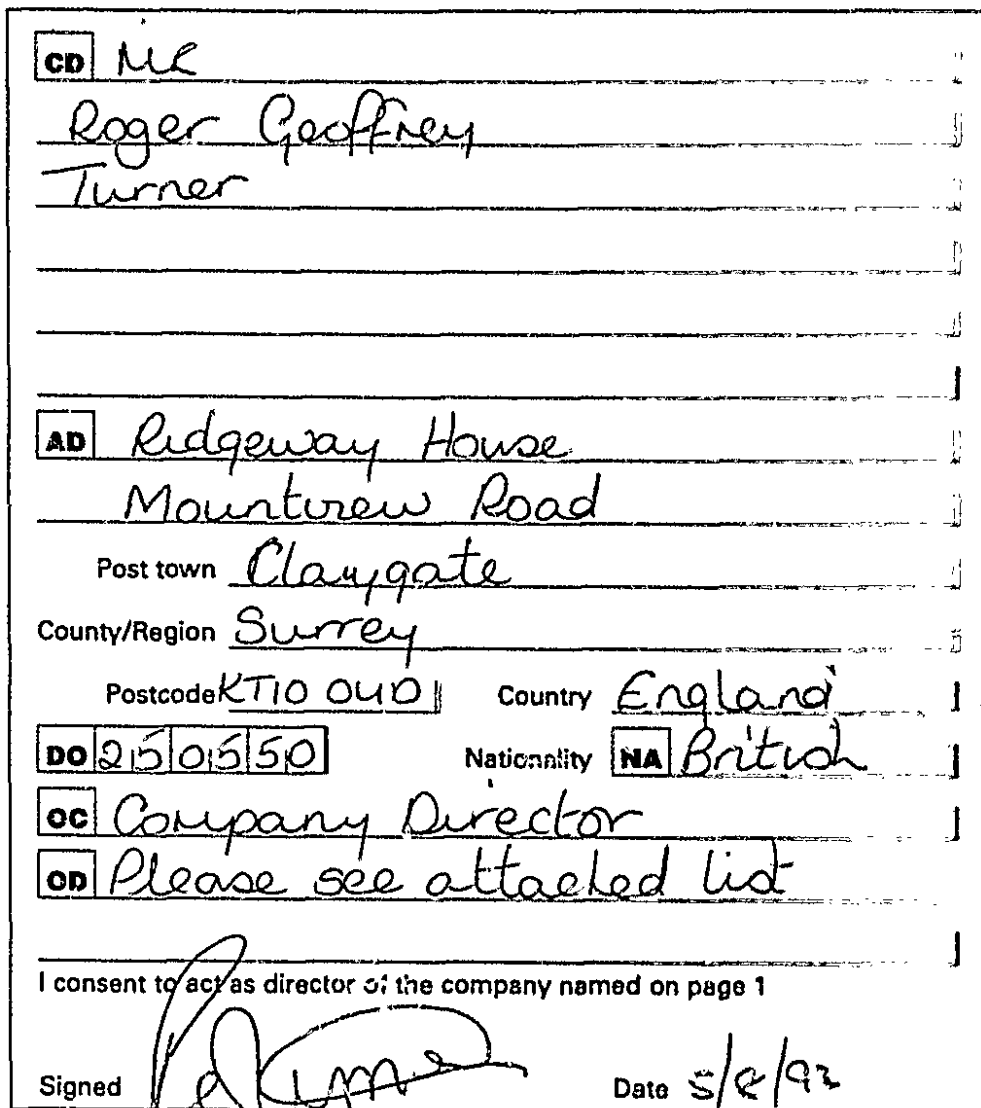 CD MR
Roger Geoffrey
Turner
AD Ridgeway House
Mountview Road
Post town Claygate
County/Region Surrey
Postcode KT10 0UD Country England
DO 250550 Nationality NA British
OC Company Director
OD Please see attached list
I consent to act as director of the company named on page 1
Signed Date 5/8/92